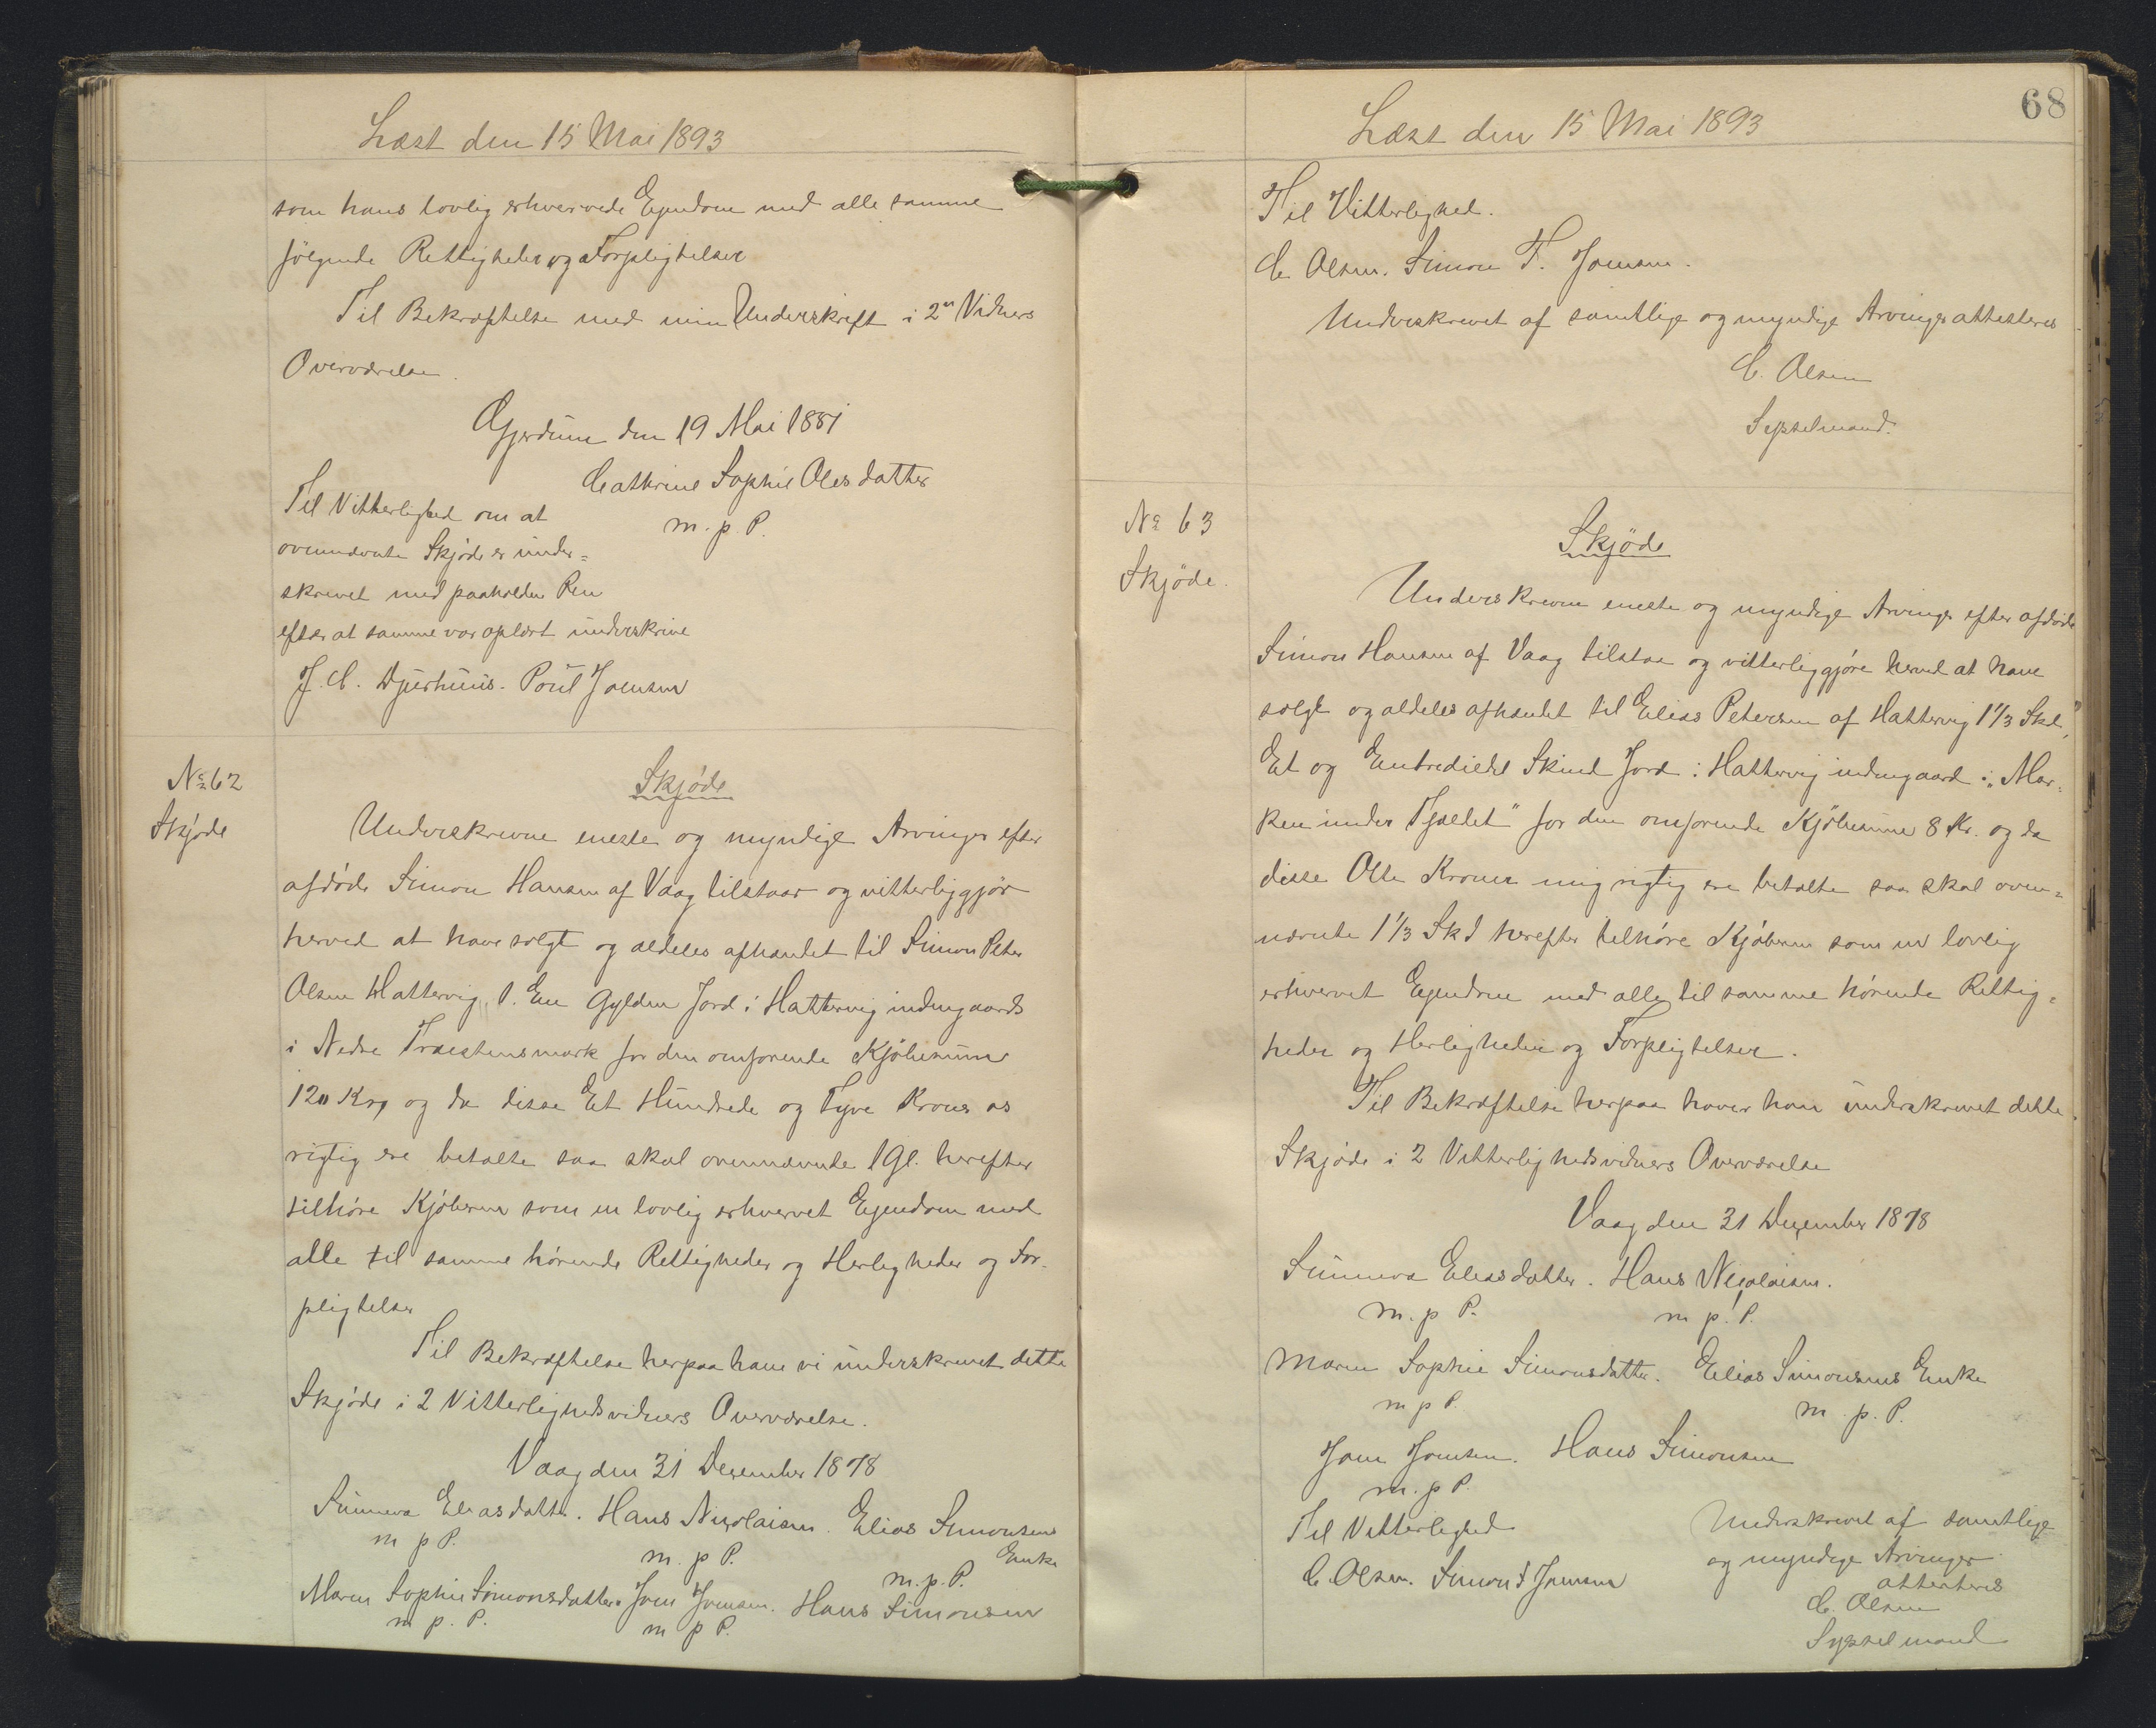 Læst den 15 Mai 1893
som hans lovlig erhvervede Ejendom med alle samme
følgende Rettigheder og Forpligtelser
Til Bekræftelse med min Underskrift i 2er Vidners
Overværelse.
Gjerdum den 19 Mai 1881
Cathrine Sophie Olesdatter
m. p. P.
Til Vitterlighed om at
ovennævnte Skjøde er under=
skrevet med paaholden Pen
efter at samme var oplæst underskrive
J. C. Djurhuus. Poul Joensen
No 62
Skjøde
Skjøde
Underskrevne eneste og myndige Arvinger efter
afdøde Simon Hansen af Vaag tilstaar og vitterliggjør
herved at have solgt og aldeles afhændet til Simon Peter
Olsen Hattervig 1. En Gylden Jord i Hattervig indengaards
i Nedre Traestensmark for den omforende Kjøbesum
120 Kr, og da disse Et Hundrede og Tyve Kroner os
rigtig ere betalte saa skal ovennævnte 1 Gl. herefter
tilhøre Kjøberen som en lovlig erhvervet Ejendom med
alle til samme hørende Rettigheder og Herligheder og For-
pligtelser
Til Bekræftelse herpaa have vi underskrevet dette
Skjøde i 2 Vitterlighedsvidners Overværelse.
Vaag den 31 December 1878
Sunneva Eliasdatter. Hans Nicolaisen. Elias Simonsens
Enke
m p P. m. p P. m. p. P.
Maren Sophie Simonsdatter. Joen Joensen. Hans Simonsen
m p. P. m p P.
68
Læst den 15 Mai 1893
Til Vitterlighed.
C. Olsen. Simon F. Joensen.
Underskrevet af samtlige og myndige Arvinger attesteres
C. Olsen
Sysselmand.
No 63
Skjøde.
Skjøde
Underskrevne eneste og myndige Arvinger efter afdøde
Simon Hansen af Vaag tilstaa og vitterliggjøre herved at have
solgt og aldeles afhændet til Elias Petersen af Hattervig 1 1/3 Skd,
Et og Entrediedel Skind Jord i Hattervig indengaard i „Mar-
ken under Fjældet" for den omforende Kjøbesum 8 Kr. og da
disse Otte Kroner mig rigtig ere betalte saa skal oven=
nævnte 1 1/3 Skd herefter tilhøre Kjøberen som en lovlig
erhvervet Ejendom med alle til samme hørende Rettig=
heder og Herligheder og Forpligtelser.
Til Bekræftelse herpaa haver han underskrevet dette
Skjøde i 2 Vitterlighedsvidners Overværelse
Vaag den 31 December 1878
Sunneva Eliasdatter. Hans Nicolaisen.
m. p P. m p. P.
Maren Sophie Simonsdatter. Elias Simonsens Enke
m p P. m. p. P.
Joen Joensen. Hans Simonsen
m. p P.
Til Vitterlighed
C. Olsen. Simon F Joensen
Underskrevet af samtlige
og myndige Arvinger
attesteres
C. Olsen
Sysselmand